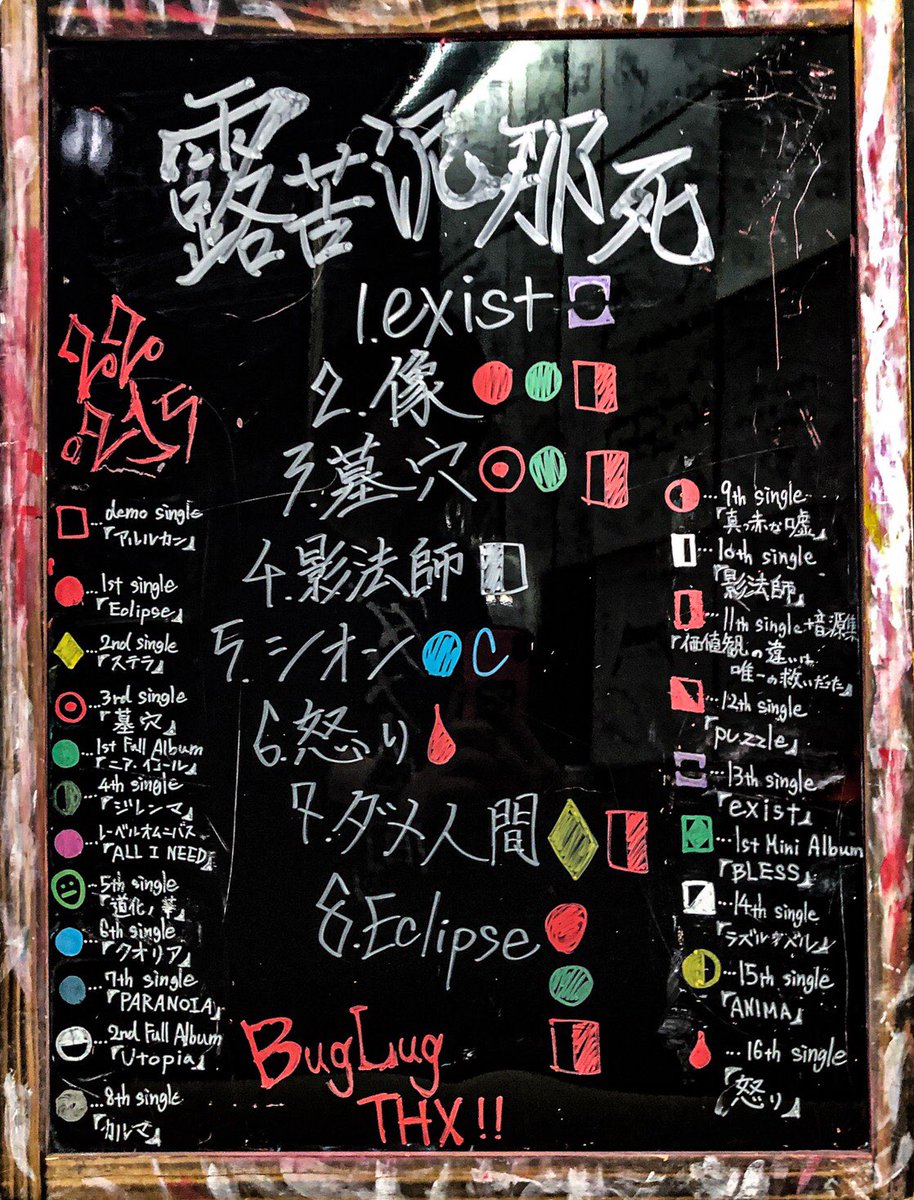 露苦泥那死
1.exist
2.像
3.墓穴
4.影法師
5.シオン C
6.怒り
7.ダメ人間
8.Eclipse
BugLug
THX!!
…demo single
『アルルカン』
…1st single
『Eclipse』
…2nd single
『ステラ』
…3rd single
『墓穴』
…1st Full Album
『ニア・イコール』
…4th single
『ジレンマ』
レーベルオムニバス
『ALL I NEED』
…5th single
『道化ノ華』
…6th single
『クオリア』
…7th single
『PARANOIA』
…2nd Full Album
『Utopia』
…8th single
『カルマ』
…9th single
『真っ赤な嘘』
…10th single
『影法師』
…11th single+音源集
『価値観の違いは
唯一の救いだった』
…12th single
『puzzle』
…13th single
『exist』
…1st Mini Album
『BLESS』
…14th single
『ラズルダズル』
…15th single
『ANIMA』
…16th single
『怒り』